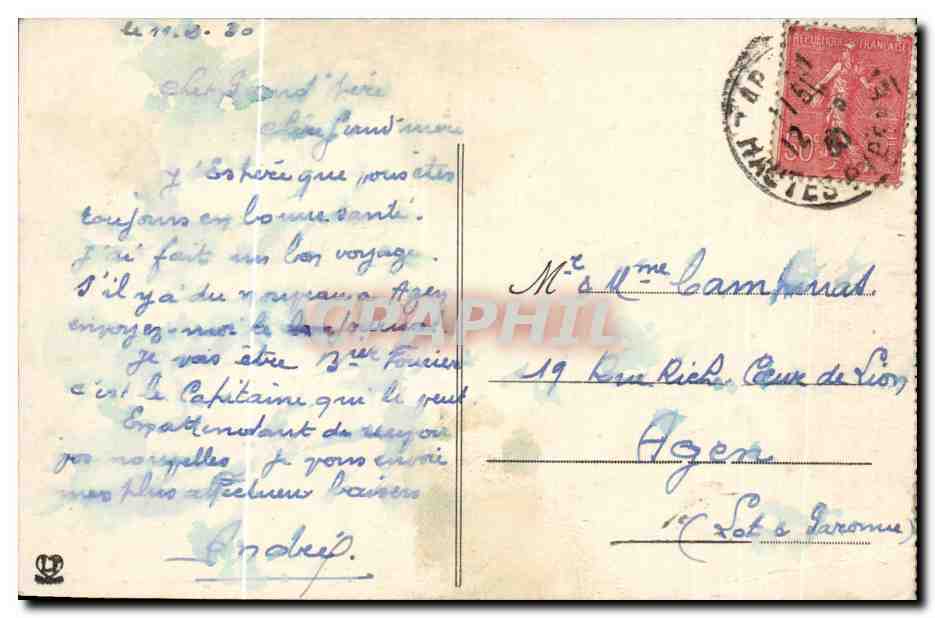 le 11.8.30
Cher Grand'Père
Chère Grand'mère
J'Espère que vous êtes
toujours en bonne santé.
J'ai fait un bon voyage.
S'il y a du nouveau a Agen
envoyez-moi le
Je vais être Brier Fourrier
c'est le Capitaine qui le veut
En attendant de recevoir
vos nouvelles je vous envoie
mes plus affectueux baisers
André.
LF
REPUBLIQUE FRANÇAISE
50c
TARBES
HAUTES PYRENEES
12
30
Mr & Mme
19 Rue Richard Cœur de Lion
Agen
(Lot & Garonne)
CPAPHIL